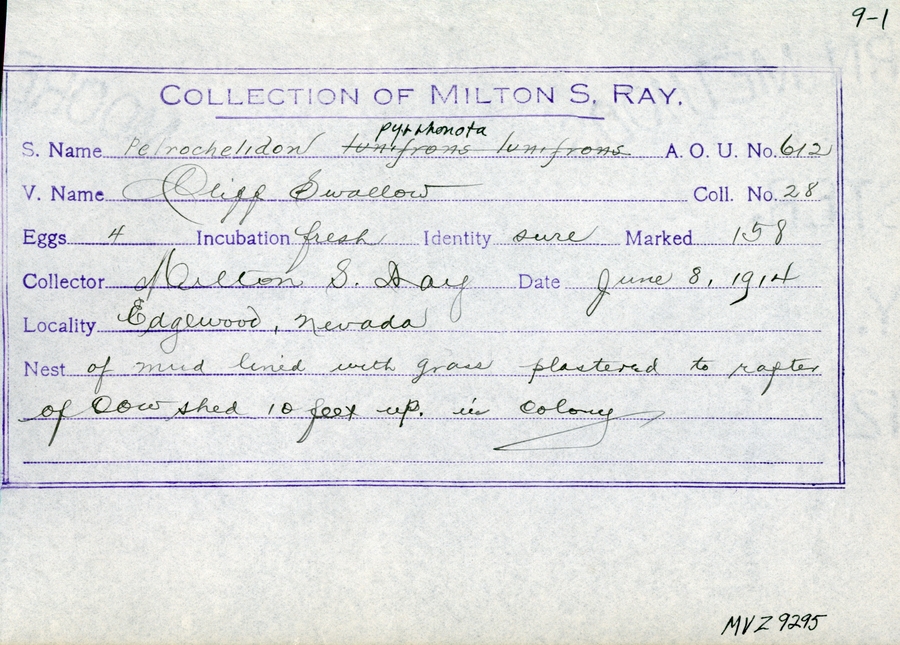 9-1
COLLECTION OF MILTON S. RAY.
pyrrhonota
S. Name Petrochelidon lunifrons lunifrons A. O. U. No. 612
V. Name Cliff Swallow Coll. No. 28
Eggs 4 Incubation fresh Identity sure Marked 158
Collector Milton S. Ray Date June 8, 1914
Locality Edgewood, Nevada
Nest of mud lined with grass plastered to rafter
of cow shed 10 feet up. in colony
MVZ 9295